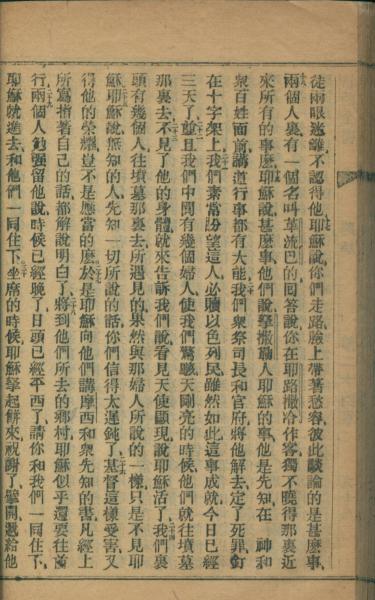 徒兩眼迷離不認得他耶穌說你們走路臉上帶著愁容彼此談論的是甚麽事
十八
兩個人裏有一個名叫革流巴的回答說你在耶路撒冷作客獨不曉得那裏近
十九
來所有的事麽耶穌說甚麽事他們說拏撒勒人耶穌的事他是先知在 神和
二十
衆百姓面前講道行事都有大能我們衆祭司長和官府將他解去定了死罪釘
二十一
在十字架上我們素常盼望這人必贖以色列民雖然如此這事成就今日已經
二十二
三天了並且我們中間有幾個婦人使我們驚駭天剛亮的時候他們就往墳墓
二十三
那裏去不見了他的身體就來告訴我們說看見天使顯現說耶穌活了我們裏
二十四
頭有幾個人往墳墓那裏去所遇見的果然與那婦人所說的一樣只是不見耶
二十五
穌耶穌說無知的人先知一切所說的話你們信得太遲鈍了基督這樣受害又
二十六
得他的榮耀豈不是應當的麽於是耶穌向他們講摩西和衆先知的書凡經上
二十七
所寫指著自己的話都解說明白了將到他們所去的鄉村耶穌似乎還要往前
二十八
行兩個人勉强留他說時候已經晚了日頭已經平西了請你和我們一同住下
二十九
耶穌就進去和他們一同住下坐席的時候耶穌拏起餅來祝謝了擘開遞給他
三十